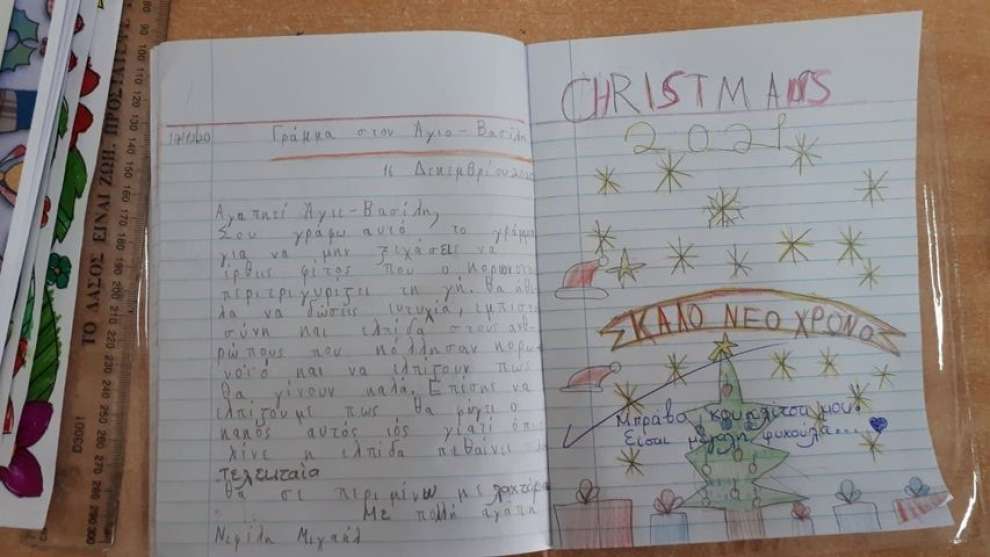 ΤΟ ΔΑΣΟΣ ΕΙΝΑΙ ΖΩΗ. ΠΡΟΣΤΑΤΕΨ
Γράμμα στον Άγιο-Βασίλη
16 Δεκεμβρίου
Αγαπητέ Άγιε-Βασίλη,
Σου γράφω αυτό το γράμμα
για να μην ξεχάσεις να
έρθεις φέτος που ο κορωνο
περιτριγυρίζει τη γή. Θα ήθε
λα να δώσεις ευτυχία, εμπιστο
σύνη και ελπίδα στους ανθ-
ρώπους που κόλλησαν κορω
νοϊό και να ελπίζουν πως
θα γίνουν καλά. Επίσης να
ελπίζουμε πως θα φύγει ο
κακός αυτός ιός γιατί όπως
λένε η ελπίδα πεθαίνει
τελευταία
Θα σε περιμένω με λαχτάρα
Με πολλή αγάπη
Νεφέλη Μιχαήλ
CHRISTMAS
2021
ΚΑΛΟ ΝΕΟ ΧΡΟΝΟ
Μπράβο κουκλίτσα μου!
Είσαι μεγάλη ψυχούλα...